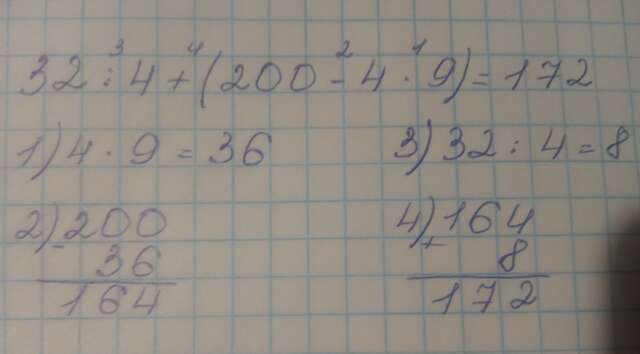 32 : 4 + (200 - 4 · 9) = 172
3 4 2 1
1) 4 · 9 = 36
3) 32 : 4 = 8
2) - 200
36
164
4) + 164
8
172